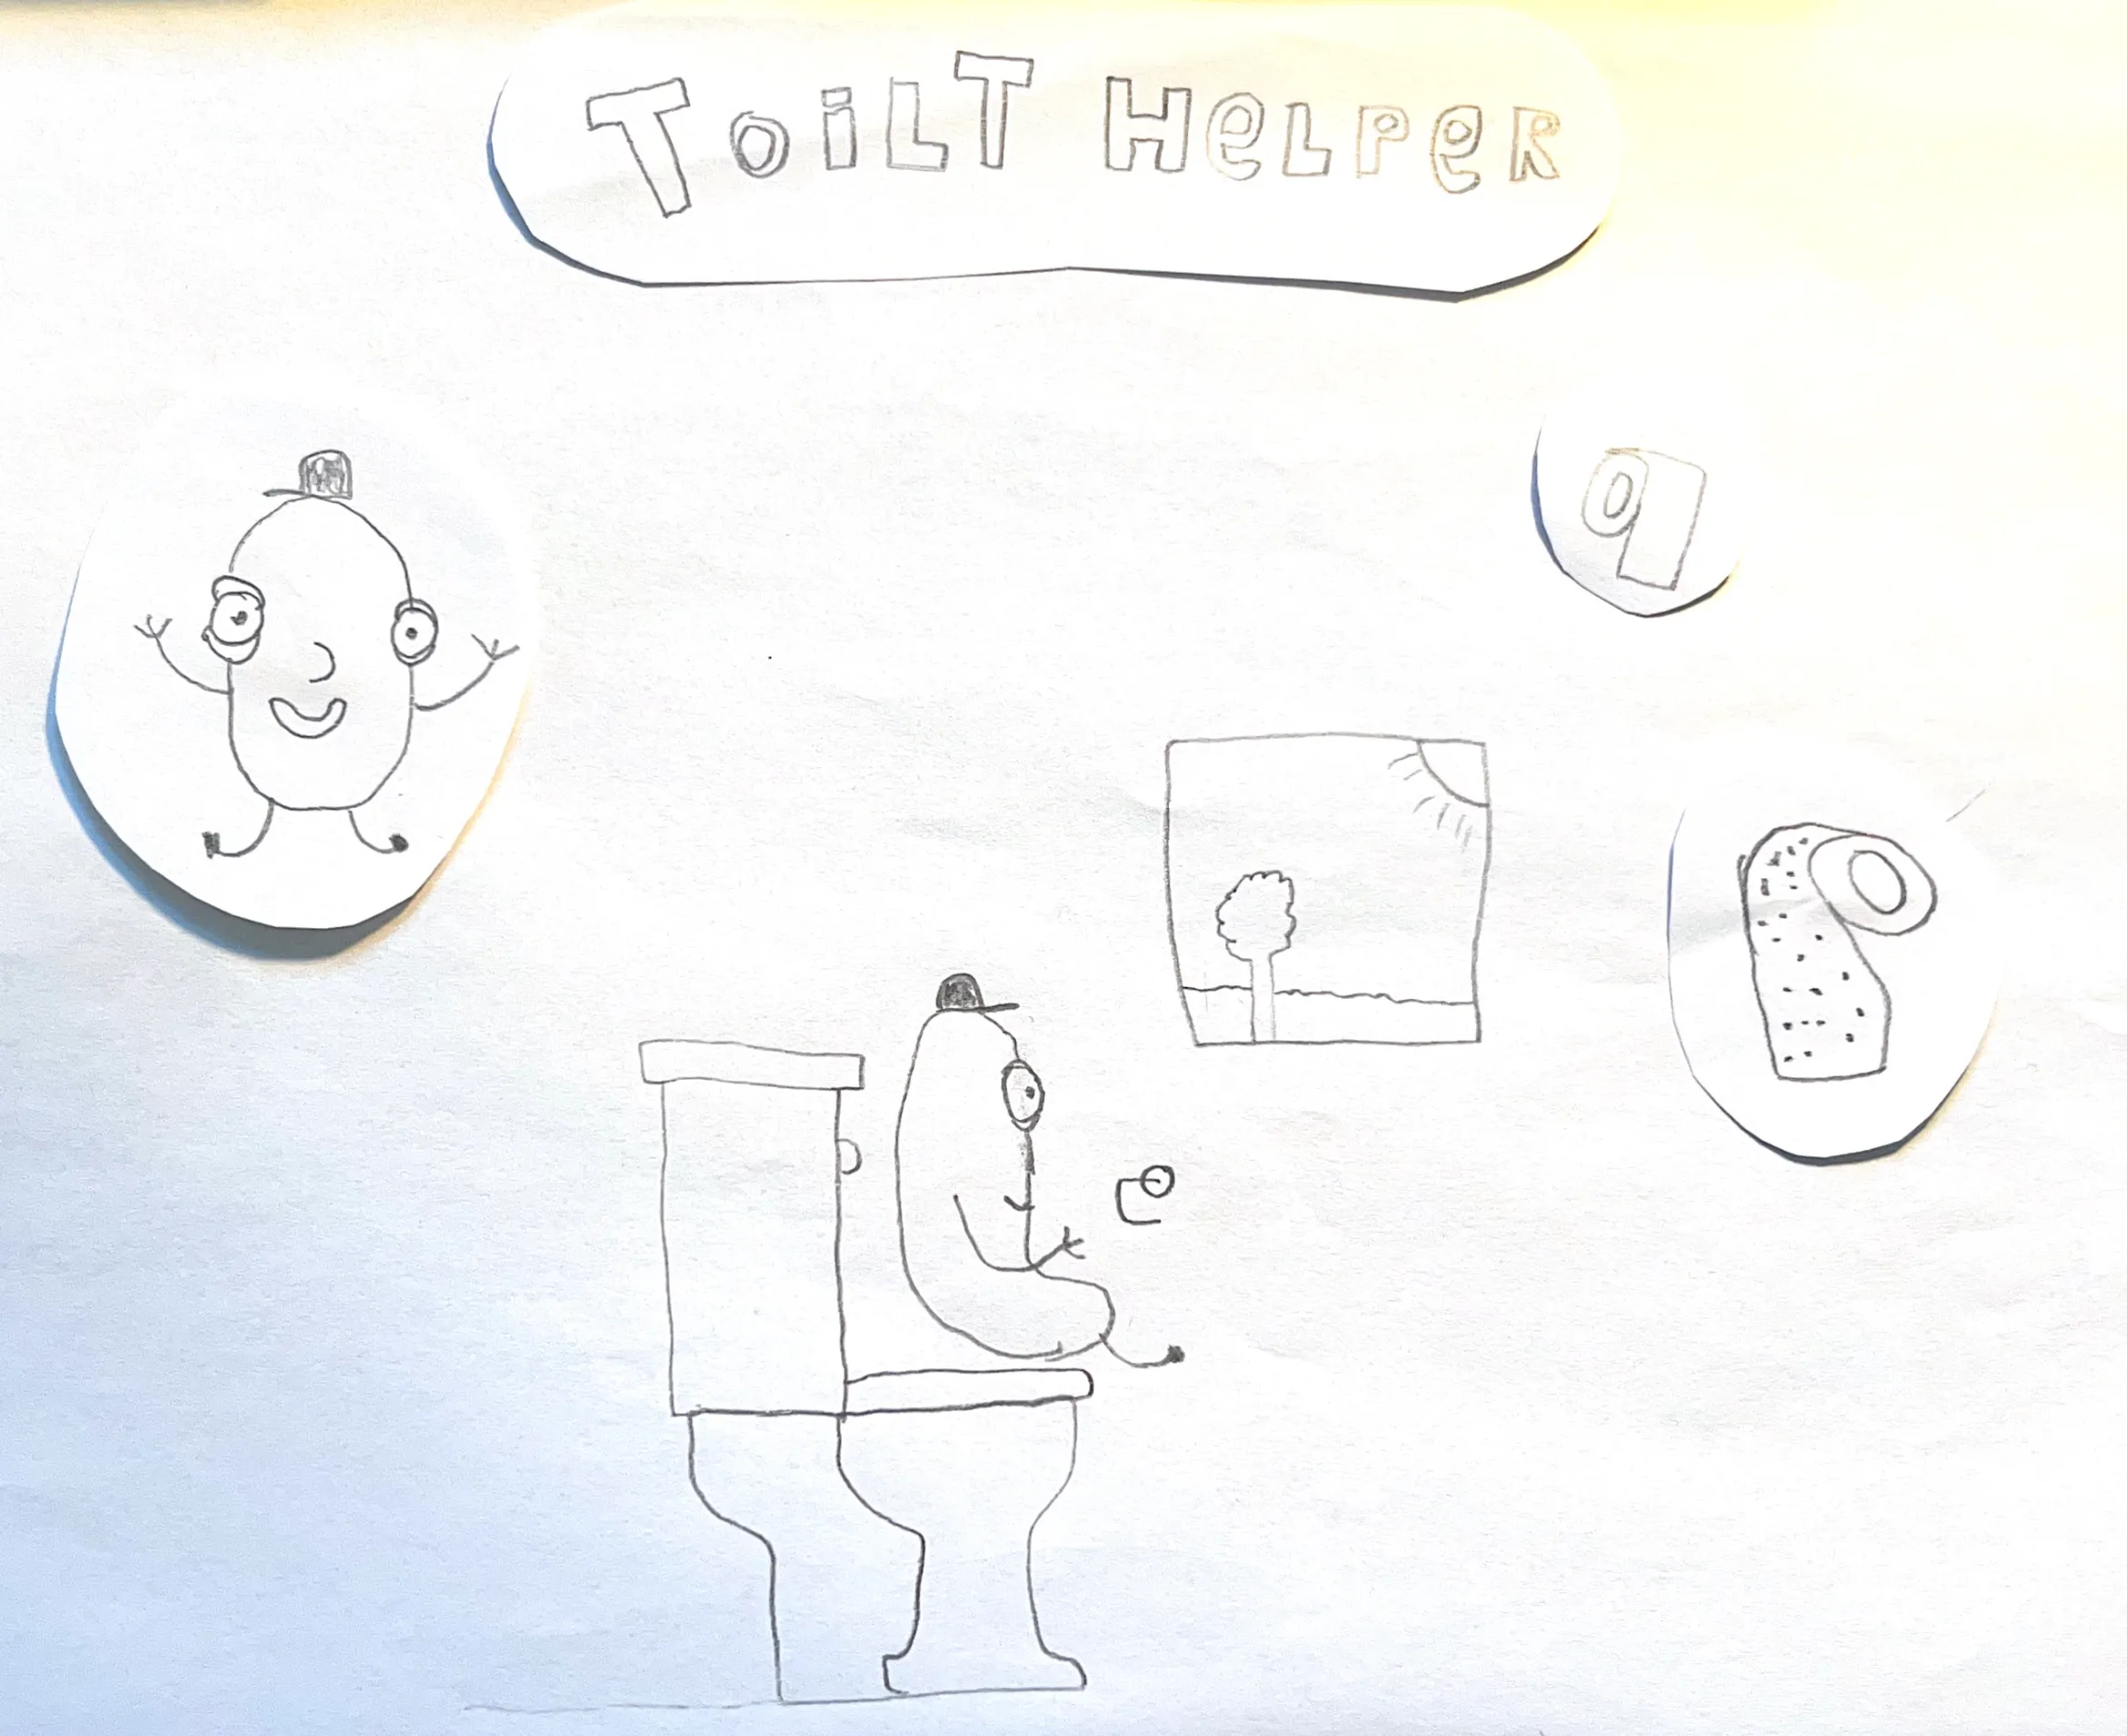 ToiLT HeLPeR